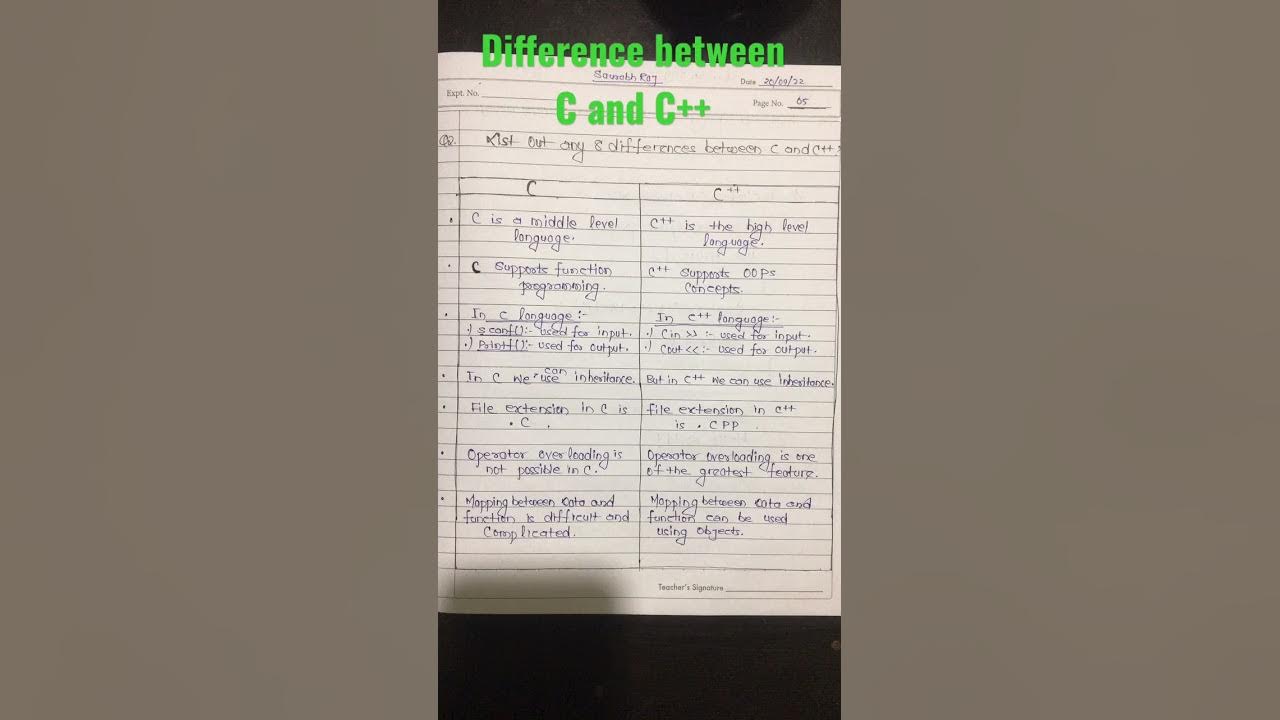 Difference between
C and C++
Saurabh Raj
Date 20/09/22
Expt. No.
Page No. 05
Q2. List out any 8 differences between C and C++.
C
C++
• C is a middle level
language.
C++ is the high level
language.
• C Supports function
programming.
C++ supports OOPs
concepts.
• In C language:-
•) scanf():- used for input.
•) Printf():- used for output.
In C++ language:-
•) Cin >> :- used for input.
•) Cout <<:- used for output.
• In C we can use inheritance.
But in C++ we can use Inheritance.
• File extension in C is
.C .
file extension in C++
is . CPP .
• Operator overloading is
not possible in C.
Operator overloading is one
of the greatest feature.
• Mapping between data and
function is difficult and
Complicated.
Mapping between data and
function can be used
using objects.
Teacher's Signature